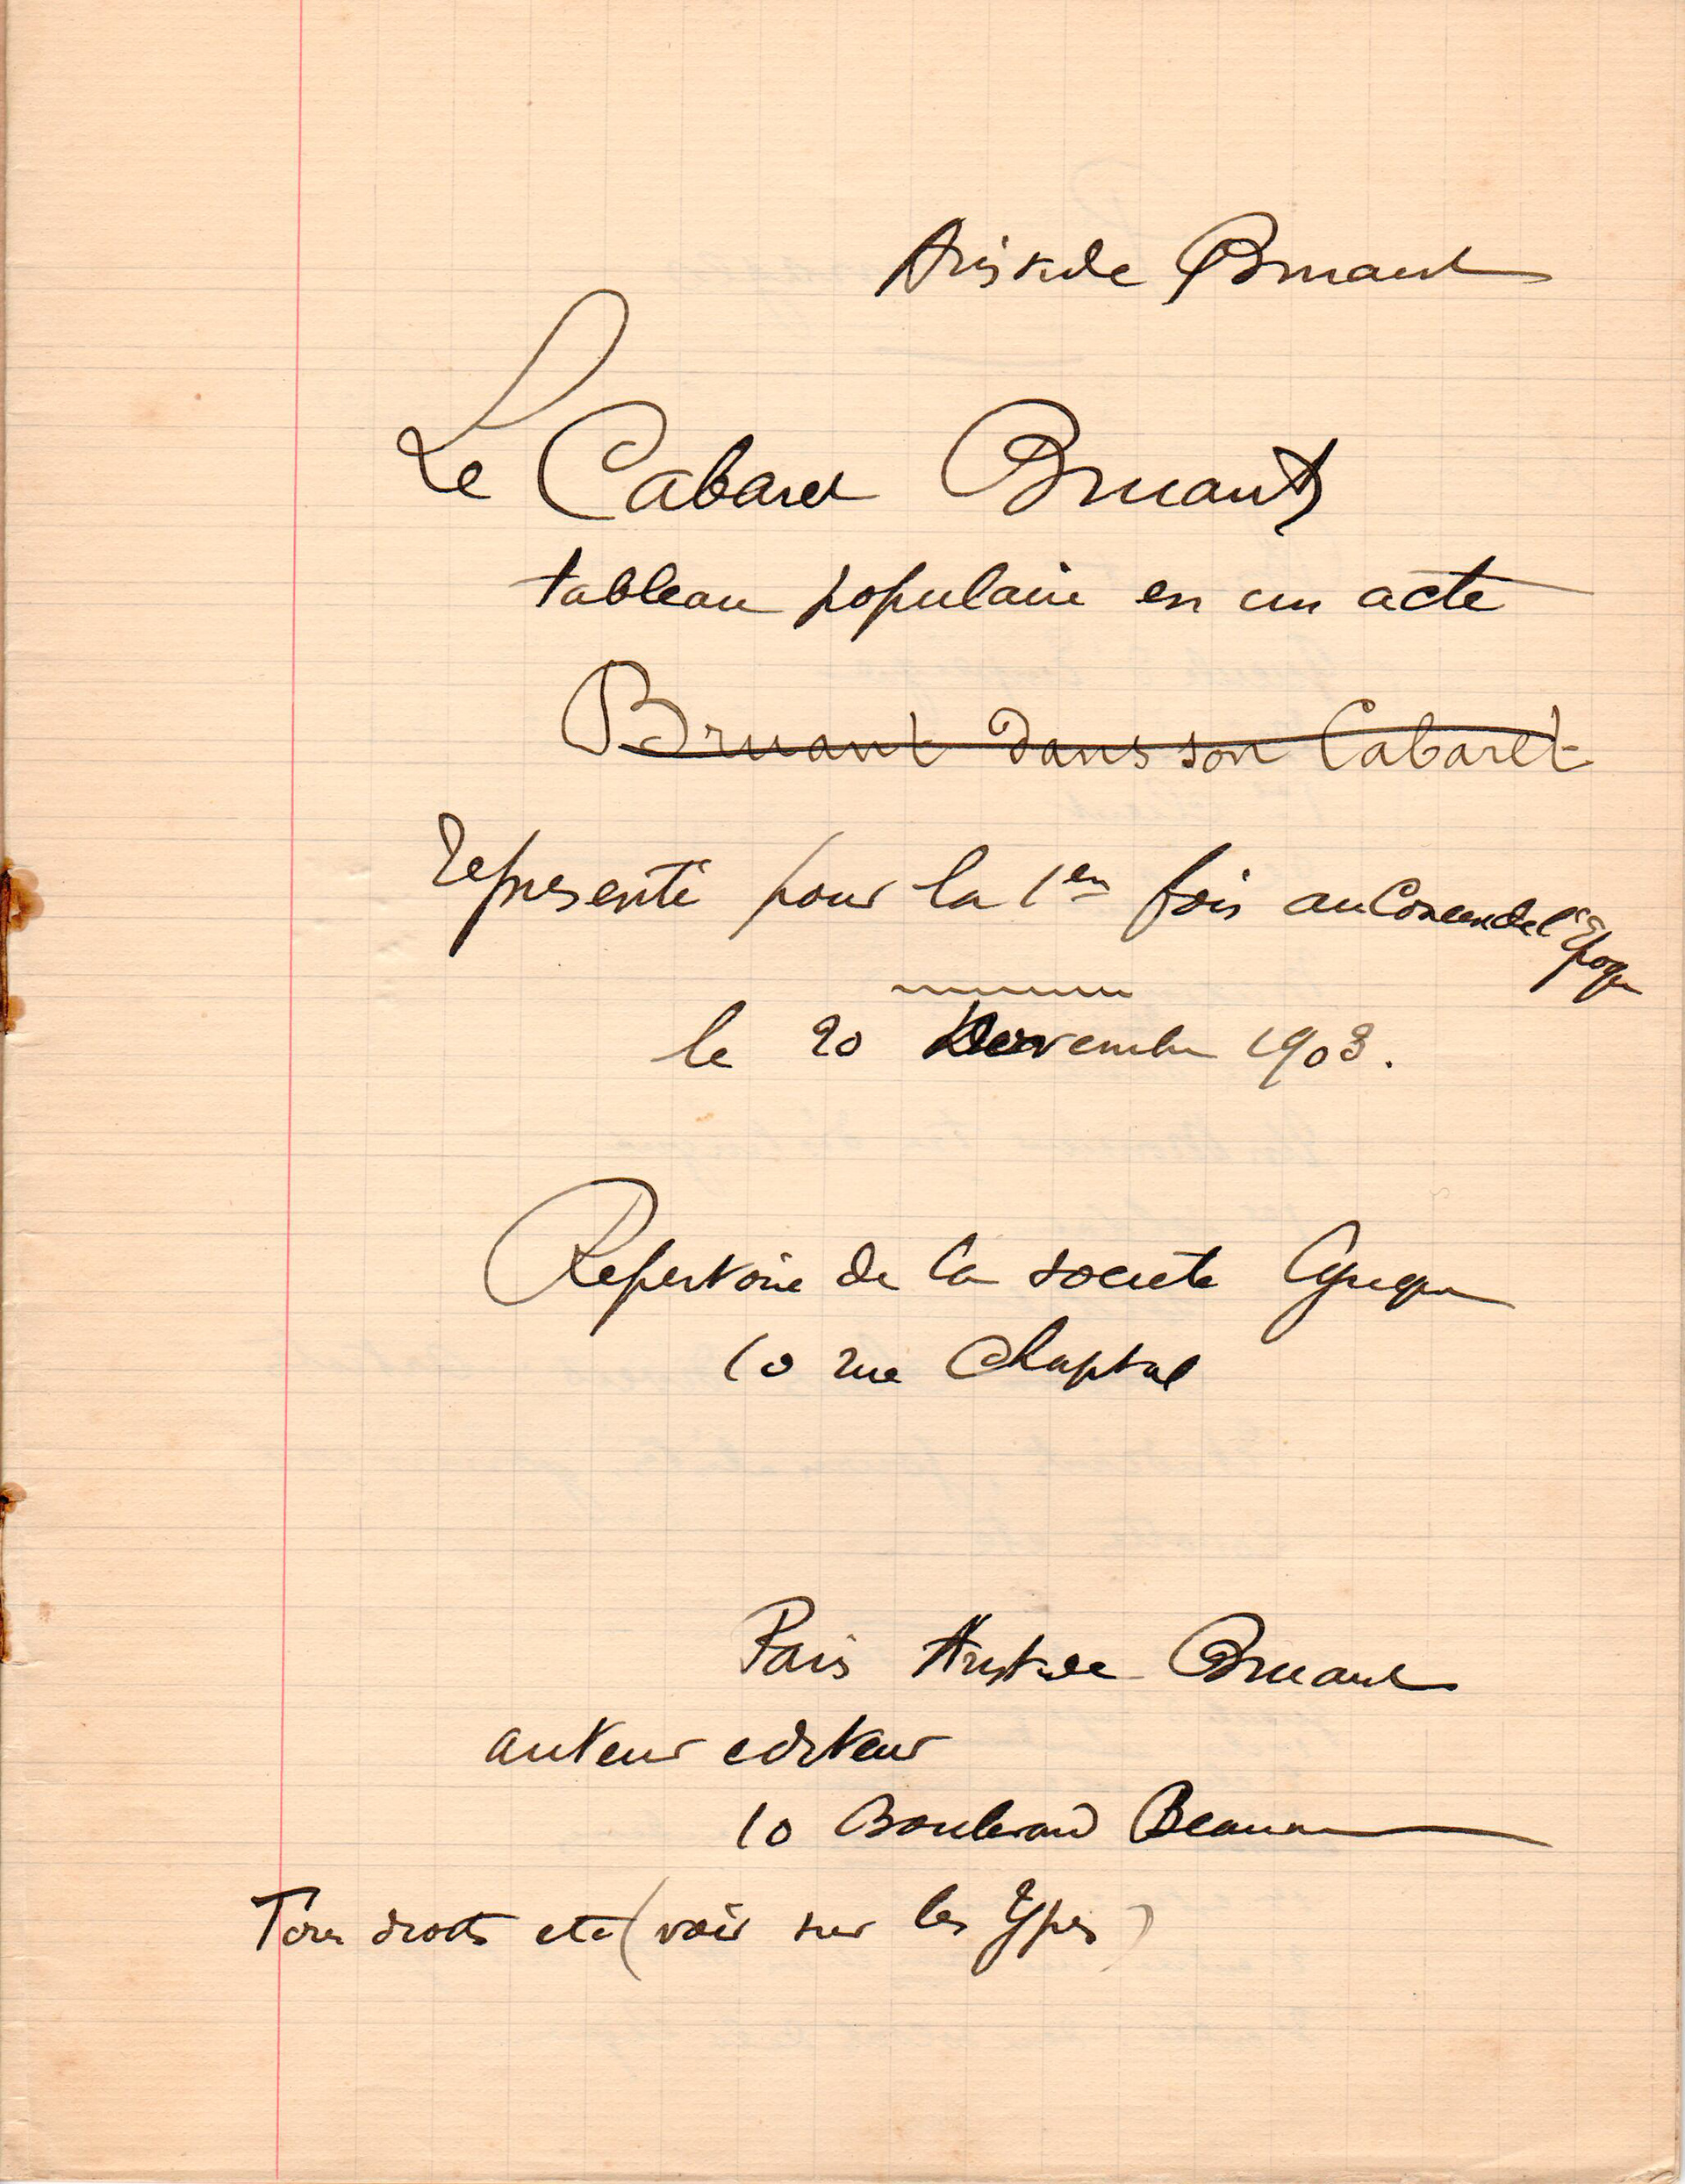 Aristide Bruant
Le Cabaret Bruant
tableau populaire en un acte
Bruant dans son Cabaret
représenté pour la 1ere fois au Concert de l'Epoque
le 20 Novembre 1903.
Repertoire de la societe Lyrique
10 rue Chaptal
Paris Aristide Bruant
auteur editeur
10 Boulevard Beaum
Tous droits etc (voir sur les types)